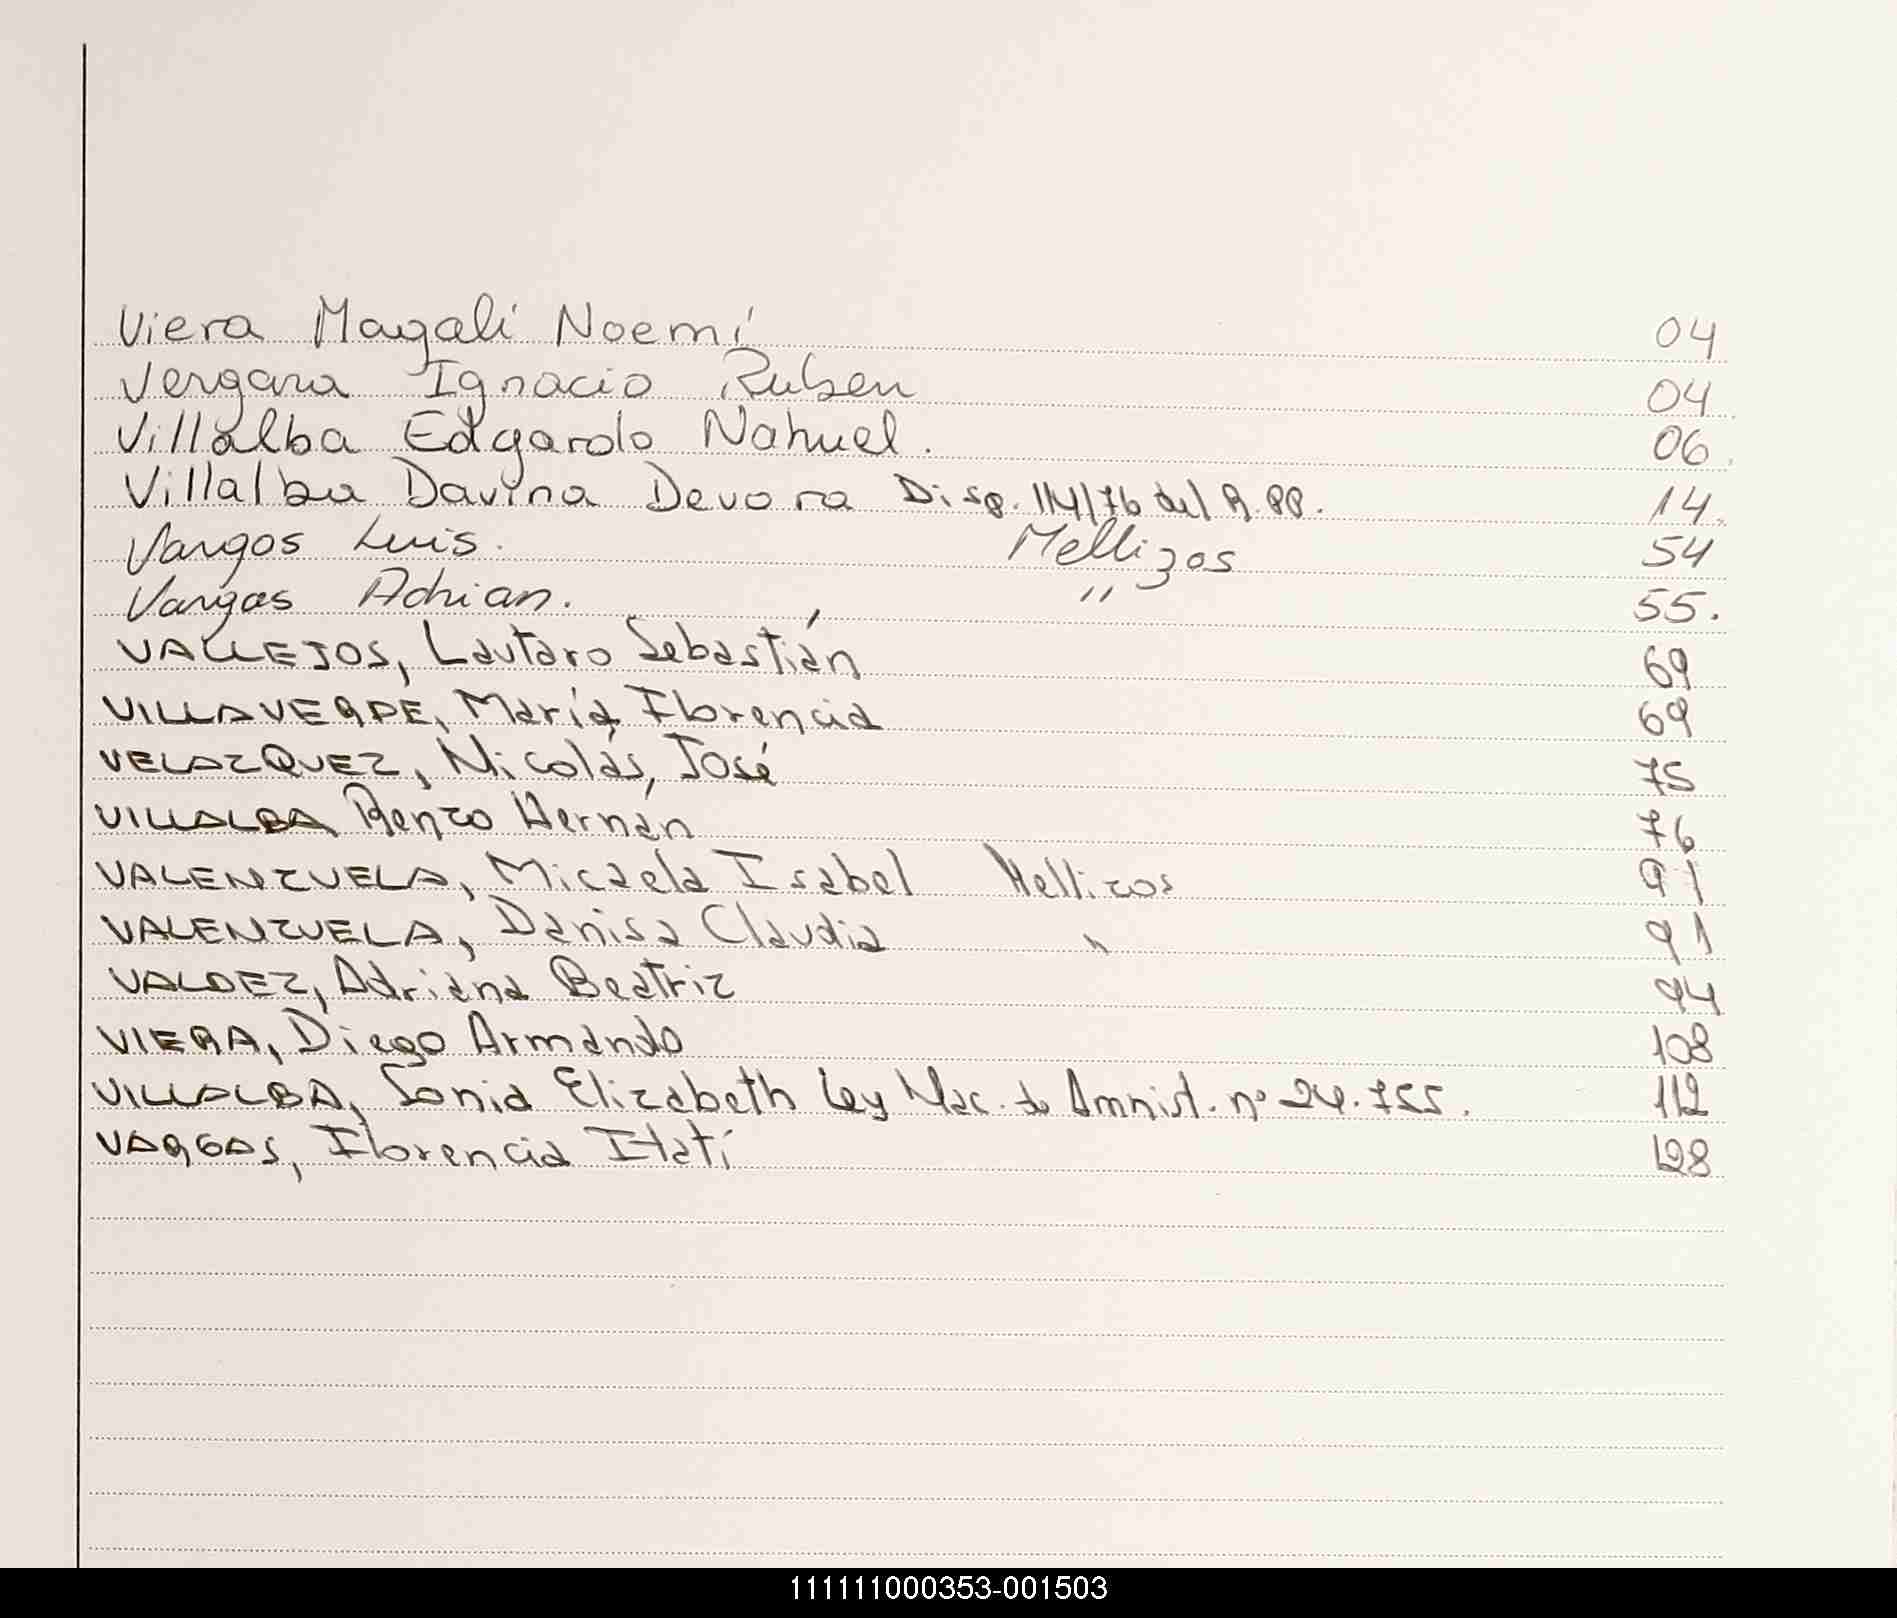 Viera Magalí Noemí 04
Vergara Ignacio Ruben 04
Villalba Edgardo Nahuel. 06.
Villalba Davina Devora Disp. 114/76 del R.PP. 14.
Vargas Luis. Mellizos 54
Vargas Adrian. " 55.
VALLEJOS, Lautaro Sebastián 69
VILLAVERDE, María Florencia 69
VELAZQUEZ, Nicolás, José 75
VILLALBA Renzo Hernán 76
VALENZUELA, Micaela Isabel Mellizos 91
VALENZUELA, Danisa Claudia " 91
VALDEZ, Adriana Beatriz 94
VIERA, Diego Armando 108
VILLALBA, Sonia Elizabeth Ley Nac. de Amnist. nº 24.755. 112
VARGAS, Florencia Itatí 128
111111000353-001503